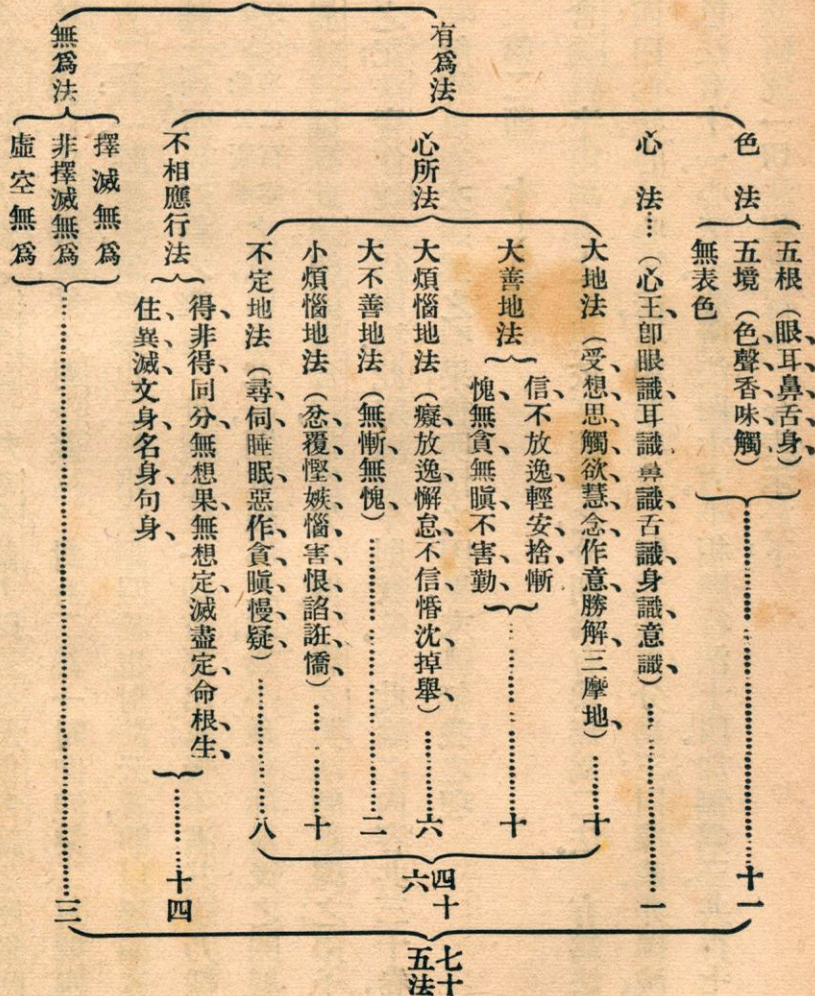 有爲法
色法
五根（眼、耳、鼻、舌、身）
五境（色、聲、香、味、觸）
無表色
十一
心法……（心王卽眼識、耳識、鼻識、舌識、身識、意識）
一
心所法
大地法（受、想、思、觸、欲、慧、念、作意、勝解、三摩地）
十
大善地法
信、不放逸、輕安、捨、慚
愧、無貪、無瞋、不害、勤、
十
大煩惱地法（癡、放逸、懈怠、不信、惛沈、掉舉、）
六
大不善地法（無慚、無愧）
二
小煩惱地法（忿、覆、慳、嫉、惱、害、恨、諂、誑、憍、）
十
不定地法（尋、伺、睡眠、惡作、貪、瞋、慢、疑、）
八
四十六
不相應行法
得、非得、同分、無想果、無想定、滅盡定、命根、生、
住、異、滅、文身、名身、句身、
十四
無爲法
擇滅無爲
非擇滅無爲
虛空無爲
三
七十五法